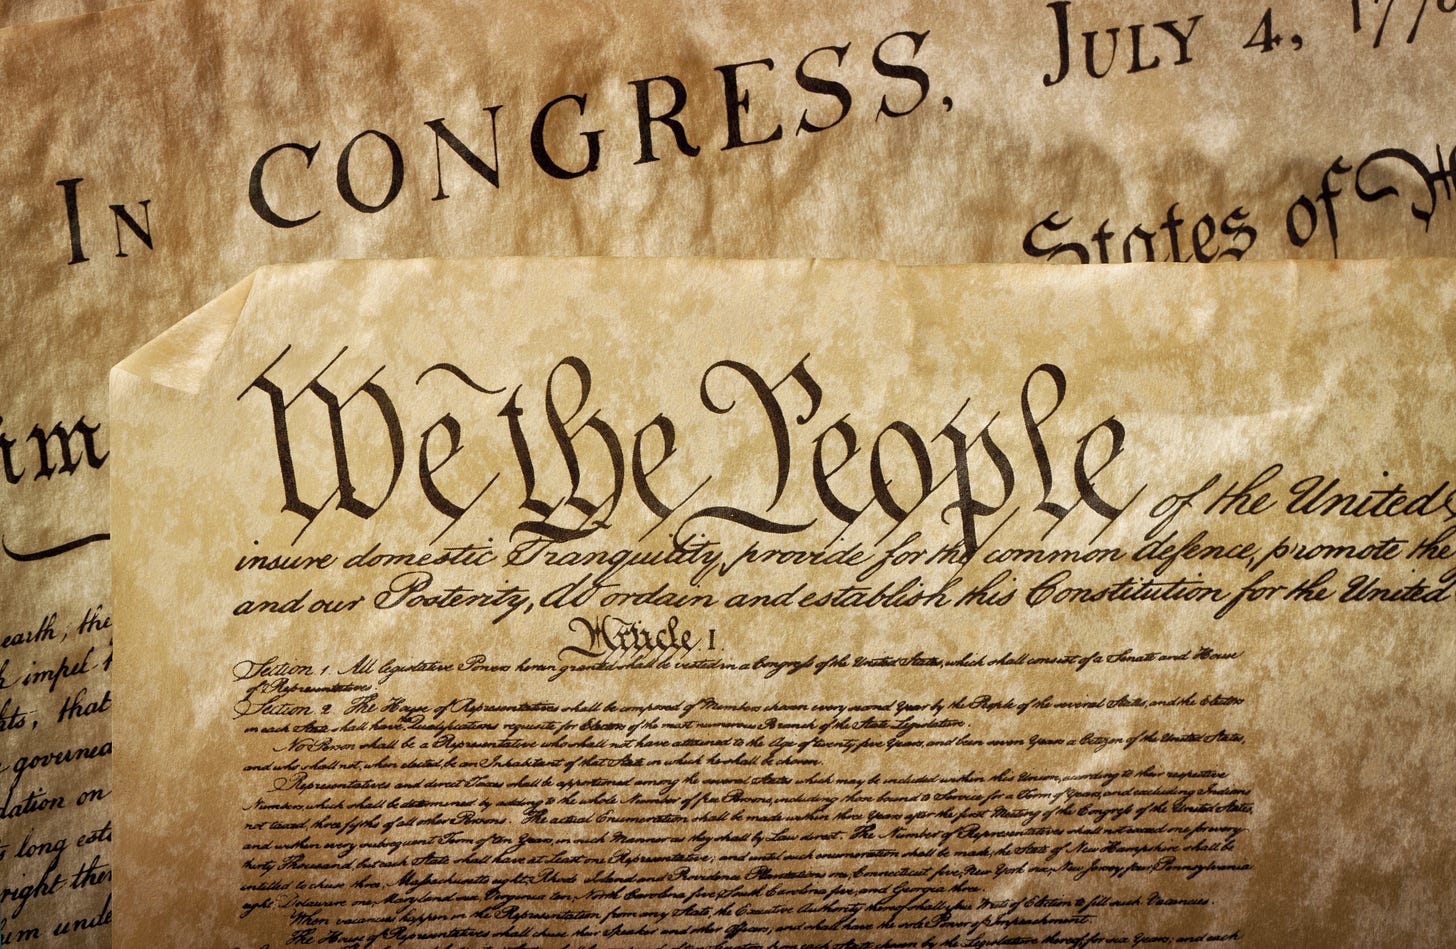 IN CONGRESS, JULY 4, 177
States of
We the People of the United
insure domestic Tranquility, provide for the common defence, promote the
and our Posterity, do ordain and establish this Constitution for the United
Article I.
Section 1. All legislative Powers herein granted shall be vested in a Congress of the United States, which shall consist of a Senate and House
of Representatives.
Section 2 The House of Representatives shall be composed of Members chosen every second Year by the People of the several States, and the Electors
in each State shall have the Qualifications requisite for Electors of the most numerous Branch of the State Legislature.
No Person shall be a Representative who shall not have attained to the Age of twenty five Years, and been seven Years a Citizen of the United States,
and who shall not, when elected, be an Inhabitant of that State in which he shall be chosen.
Representatives and direct Taxes shall be apportioned among the several States which may be included within this Union, according to their respective
Numbers, which shall be determined by adding to the whole Number of free Persons, including those bound to Service for a Term of Years, and excluding Indians
not taxed, three fifths of all other Persons. The actual Enumeration shall be made within three Years after the first Meeting of the Congress of the United States,
and within every subsequent Term of ten Years, in such Manner as they shall by Law direct. The Number of Representatives shall not exceed one for every
thirty Thousand, but each State shall have at Least one Representative; and until such enumeration shall be made, the State of New Hampshire shall be
entitled to chuse three, Massachusetts eight, Rhode Island and Providence Plantations one, Connecticut five, New York six, New Jersey four, Pennsylvania
eight, Delaware one, Maryland six, Virginia ten, North Carolina five, South Carolina five, and Georgia three.
When vacancies happen in the Representation from any State, the Executive Authority thereof shall issue Writs of Election to fill such Vacancies.
The House of Representatives shall chuse their Speaker and other Officers; and shall have the sole Power of Impeachment.
from each State chosen by the Legislature thereof, for six Years; and each
earth, the
impel
that
governed
dation on
long est
right the
them unde